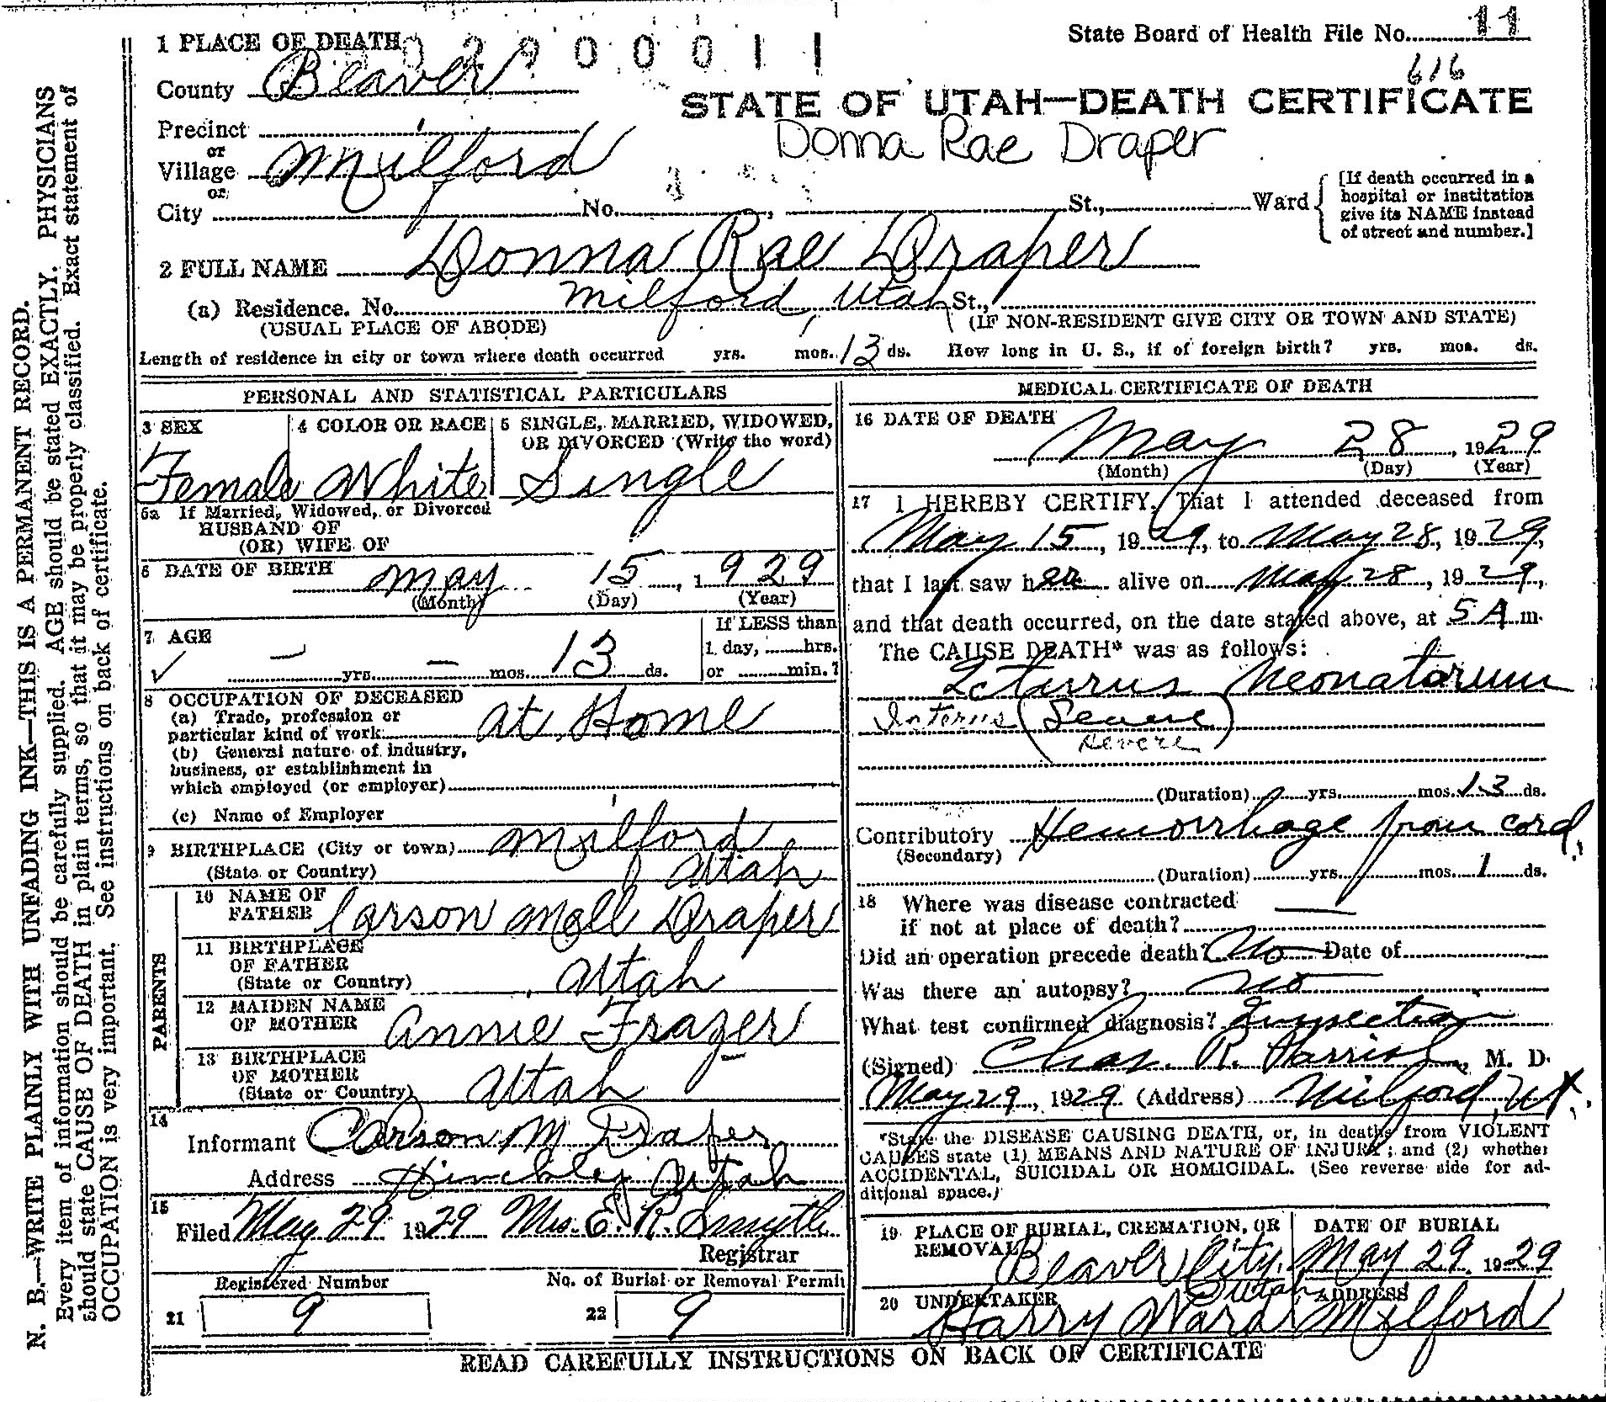 1 PLACE OF DEATH
02900011
State Board of Health File No. 11
County Beaver
616
STATE OF UTAH—DEATH CERTIFICATE
Precinct
Donna Rae Draper
or
Village Milford
or
City No. St., Ward
[If death occurred in a
hospital or institution
give its NAME instead
of street and number.]
2 FULL NAME Donna Rae Draper
(a) Residence. No. Milford, Utah St.,
(USUAL PLACE OF ABODE) (IF NON-RESIDENT GIVE CITY OR TOWN AND STATE)
Length of residence in city or town where death occurred yrs. mos. 13 ds. How long in U. S., if of foreign birth? yrs. mos. ds.
PERSONAL AND STATISTICAL PARTICULARS
3 SEX
Female
4 COLOR OR RACE
White
5 SINGLE, MARRIED, WIDOWED,
OR DIVORCED (Write the word)
Single
5a If Married, Widowed, or Divorced
HUSBAND OF
(OR) WIFE OF
6 DATE OF BIRTH May 15, 1929
(Month) (Day) (Year)
7 AGE
— yrs. — mos. 13 ds.
If LESS than
1 day, hrs.
or min.?
8 OCCUPATION OF DECEASED
(a) Trade, profession or
particular kind of work at Home
(b) General nature of industry,
business, or establishment in
which employed (or employer)
(c) Name of Employer
9 BIRTHPLACE (City or town) Milford
(State or Country) Utah
PARENTS
10 NAME OF
FATHER Carson Mell Draper
11 BIRTHPLACE
OF FATHER
(State or Country) Utah
12 MAIDEN NAME
OF MOTHER Annie Frazer
13 BIRTHPLACE
OF MOTHER
(State or Country) Utah
14
Informant Carson M Draper
Address Hinckley Utah
15
Filed May 29 1929 Mrs. E. R. Smyth
Registrar
Registered Number
21 9
No. of Burial or Removal Permit
22 9
MEDICAL CERTIFICATE OF DEATH
16 DATE OF DEATH
May 28, 1929
(Month) (Day) (Year)
17 I HEREBY CERTIFY, That I attended deceased from
May 15, 1929, to May 28, 1929,
that I last saw her alive on May 28, 1929,
and that death occurred, on the date stated above, at 5 A m.
The CAUSE DEATH* was as follows:
Icterus Neonatorum
Icterus (Severe)
severe
(Duration) yrs. mos. 13 ds.
Contributory Hemorrhage from cord.
(Secondary)
(Duration) yrs. mos. 1 ds.
18 Where was disease contracted
if not at place of death?
Did an operation precede death? No Date of
Was there an autopsy? no
What test confirmed diagnosis? Inspection
(Signed) Chas. R. Parrish, M. D.
May 29, 1929 (Address) Milford, Ut.
*State the DISEASE CAUSING DEATH, or, in deaths from VIOLENT
CAUSES state (1) MEANS AND NATURE OF INJURY; and (2) whether
ACCIDENTAL, SUICIDAL OR HOMICIDAL. (See reverse side for ad-
ditional space.)
19 PLACE OF BURIAL, CREMATION, OR
REMOVAL Beaver City, Utah
DATE OF BURIAL
May 29 1929
20 UNDERTAKER
Harry Ward
ADDRESS
Milford
READ CAREFULLY INSTRUCTIONS ON BACK OF CERTIFICATE
N. B.—WRITE PLAINLY WITH UNFADING INK—THIS IS A PERMANENT RECORD.
Every item of information should be carefully supplied. AGE should be stated EXACTLY. PHYSICIANS
should state CAUSE OF DEATH in plain terms, so that it may be properly classified. Exact statement of
OCCUPATION is very important. See instructions on back of certificate.